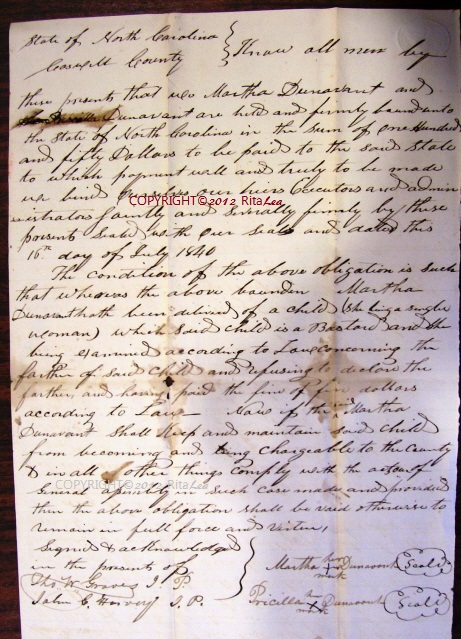 State of North Carolina
Caswell County } Know all men by
these presents that we Martha Dunavant and
Dunavant are held and firmly bound unto
the State of North Carolina in the sum of one Hundred
and fifty Dollars to be paid to the said State
to which payment well and truly to be made
we bind ourselves our heirs Executors and admin
istrators jointly and Severally firmly by these
COPYRIGHT©2012 RitaLea
presents Sealed with our Seals and dated this
16th day of July 1840
The condition of the above obligation is such
that whereas the above bounden Martha
Dunavant hath been delivered of a child (she being a single
woman) which said child is a Bastard and she
being examined according to Law concerning the
farther of said child and refusing to declare the
farther, and having paid the fine of five dollars
according to Law Now if the said Martha
Dunavant Shall keep and maintain said child
from becoming and being chargeable to the County
& in all other things comply with the act of our
COPYRIGHT©2012 RitaLea
General assembly in such case made and provided
then the above obligation shall be void otherwise to
remain in full force and virtue,
Signed & acknowledged
in the presents of
Tho W Graves J. P.
John C. Harvey J. P.
Martha her X mark Dunavant (Seal)
Pricilla her X mark Dunavant (Seal)